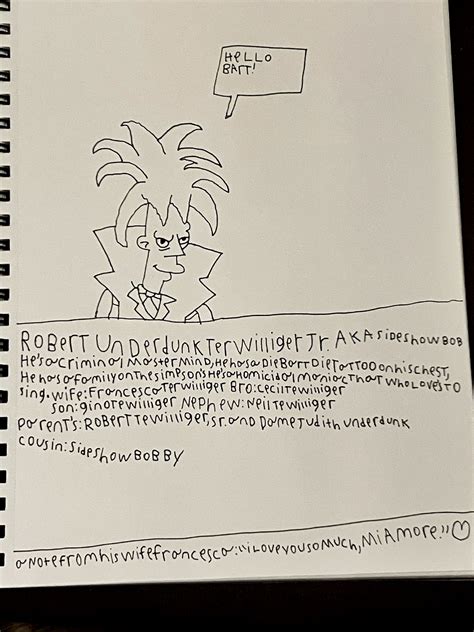 HELLO
BART!
ROBERT UNDERDUNK TERWILLIGER Jr. AKA SIDESHOW BOB
He's a criminal Master MIND, He has a Die Bart Die Tattoo on his chest,
He has a family on the simpson's He's a Homicidal Maniac That who Loves To
Sing. wife: Francesca Terwilliger Bro: Cecil Tewilliger
Son: gino Tewilliger Nephew: Neil Tewilliger
Parent's: RoberT Tewilliger, sr. and Dame Judith underdunk
cousin: SideshowBOBBY
a Note from his wife francesca: "i Love you so Much, Mi Amore."